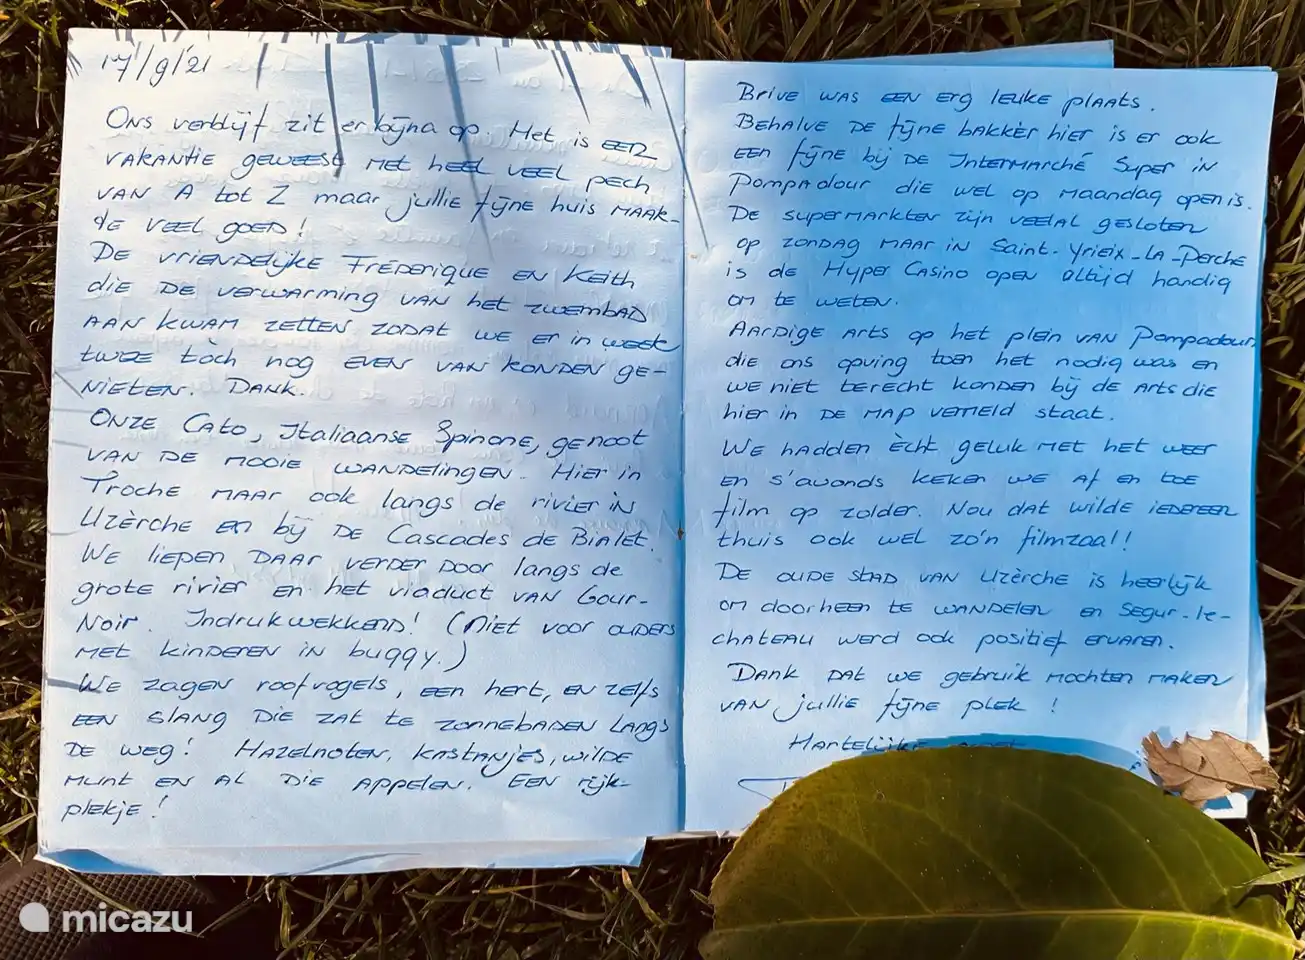 17/9/'21
Ons verblijf zit er bijna op. Het is een
vakantie geweest met heel veel pech
van A tot Z maar jullie fijne huis maak-
te veel goed!
De vriendelijke Fréderique en Keith
die de verwarming van het zwembad
aan kwam zetten zodat we er in week
twee tòch nog even van konden ge-
nieten. Dank.
Onze Cato, Italiaanse Spinone, genoot
van de mooie wandelingen. Hier in
Troche maar ook langs de rivier in
Uzèrche en bij de Cascades de Bialet.
We liepen daar verder door langs de
grote rivier en het viaduct van Gour-
Noir. Indrukwekkend! (Niet voor ouders
met kinderen in buggy.)
We zagen roofvogels, een hert, en zelfs
een slang die zat te zonnebaden langs
de weg! Hazelnoten, kastanjes, wilde
munt en al die appelen. Een rijk-
plekje!
Brive was een erg leuke plaats.
Behalve de fijne bakkèr hier is er ook
een fijne bij de Intermarché Super in
Pompadour die wel op maandag open is.
De supermarkten zijn veelal gesloten
op zondag maar in Saint-Yrieix-la-Perche
is de Hyper Casino open altijd handig
om te weten.
Aardige arts op het plein van Pompadour
die ons opving toen het nodig was en
we niet terecht konden bij de arts die
hier in de map vermeld staat.
We hadden ècht geluk met het weer
en s'avonds keken we af en toe
film op zolder. Nou dat wilde iedereen
thuis ook wel zo'n filmzaal!
De oude stad van Uzèrche is heerlijk
om doorheen te wandelen en Segur-le-
chateau werd ook positief ervaren.
Dank dat we gebruik mochten maken
van jullie fijne plek!
Hartelijke groet
micazu